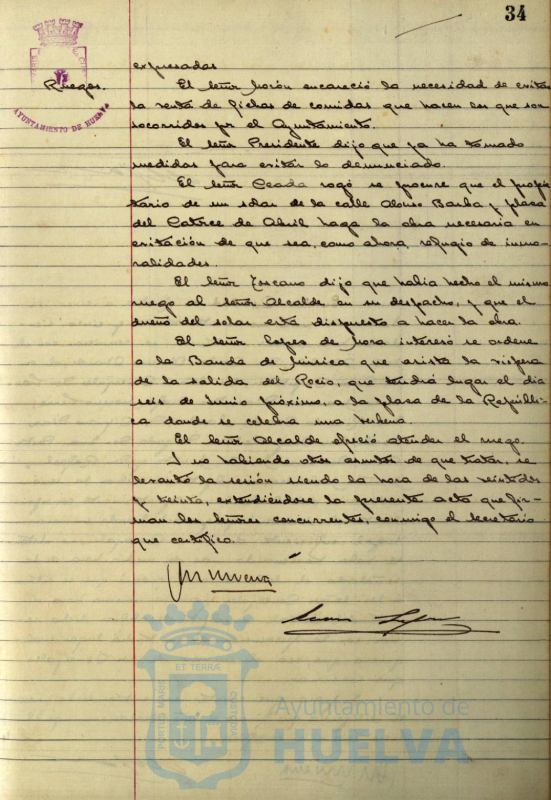 34
AYUNTAMIENTO DE HUELVA
expresadas
Ruegos.
El señor Morón encareció la necesidad de evitar
la venta de fichas de comidas que hacen los que son
socorridos por el Ayuntamiento.
El señor Presidente dijo que ya ha tomado
medidas para evitar lo denunciado.
El señor Ceada rogó se procure que el propie-
tario de un solar de la calle Alonso Barba y plaza
del Catorce de Abril haga la obra necesaria en
evitación de que sea, como ahora, refugio de inmo-
ralidades.
El señor Toscano dijo que había hecho el mismo
ruego al señor Alcalde en su despacho, y que el
dueño del solar está dispuesto a hacer la obra.
El señor López de Mora interesó se ordene
a la Banda de Música que asista la víspera
de la salida del Rocío, que tendrá lugar el día
seis de Junio próximo, a la plaza de la Repúbli-
ca donde se celebra una verbena.
El señor Alcalde ofreció atender el ruego.
Y no habiendo otros asuntos de que tratar, se
levantó la sesión siendo la hora de las veintidos
y treinta, extendiéndose la presente acta que fir-
man los señores concurrentes, conmigo el Secretario
que certifico.
ET TERRÆ
PORTUS MARIS
CUSTODIA
Ayuntamiento de
HUELVA